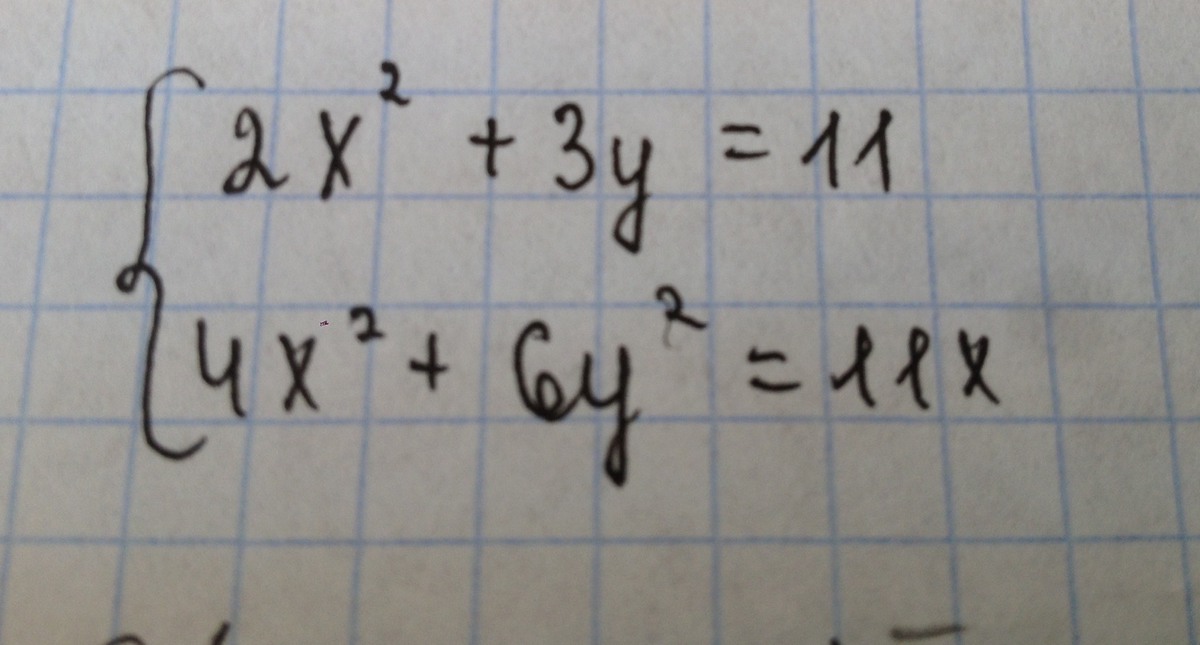 2x² + 3y = 11
4x² + 6y² = 11x